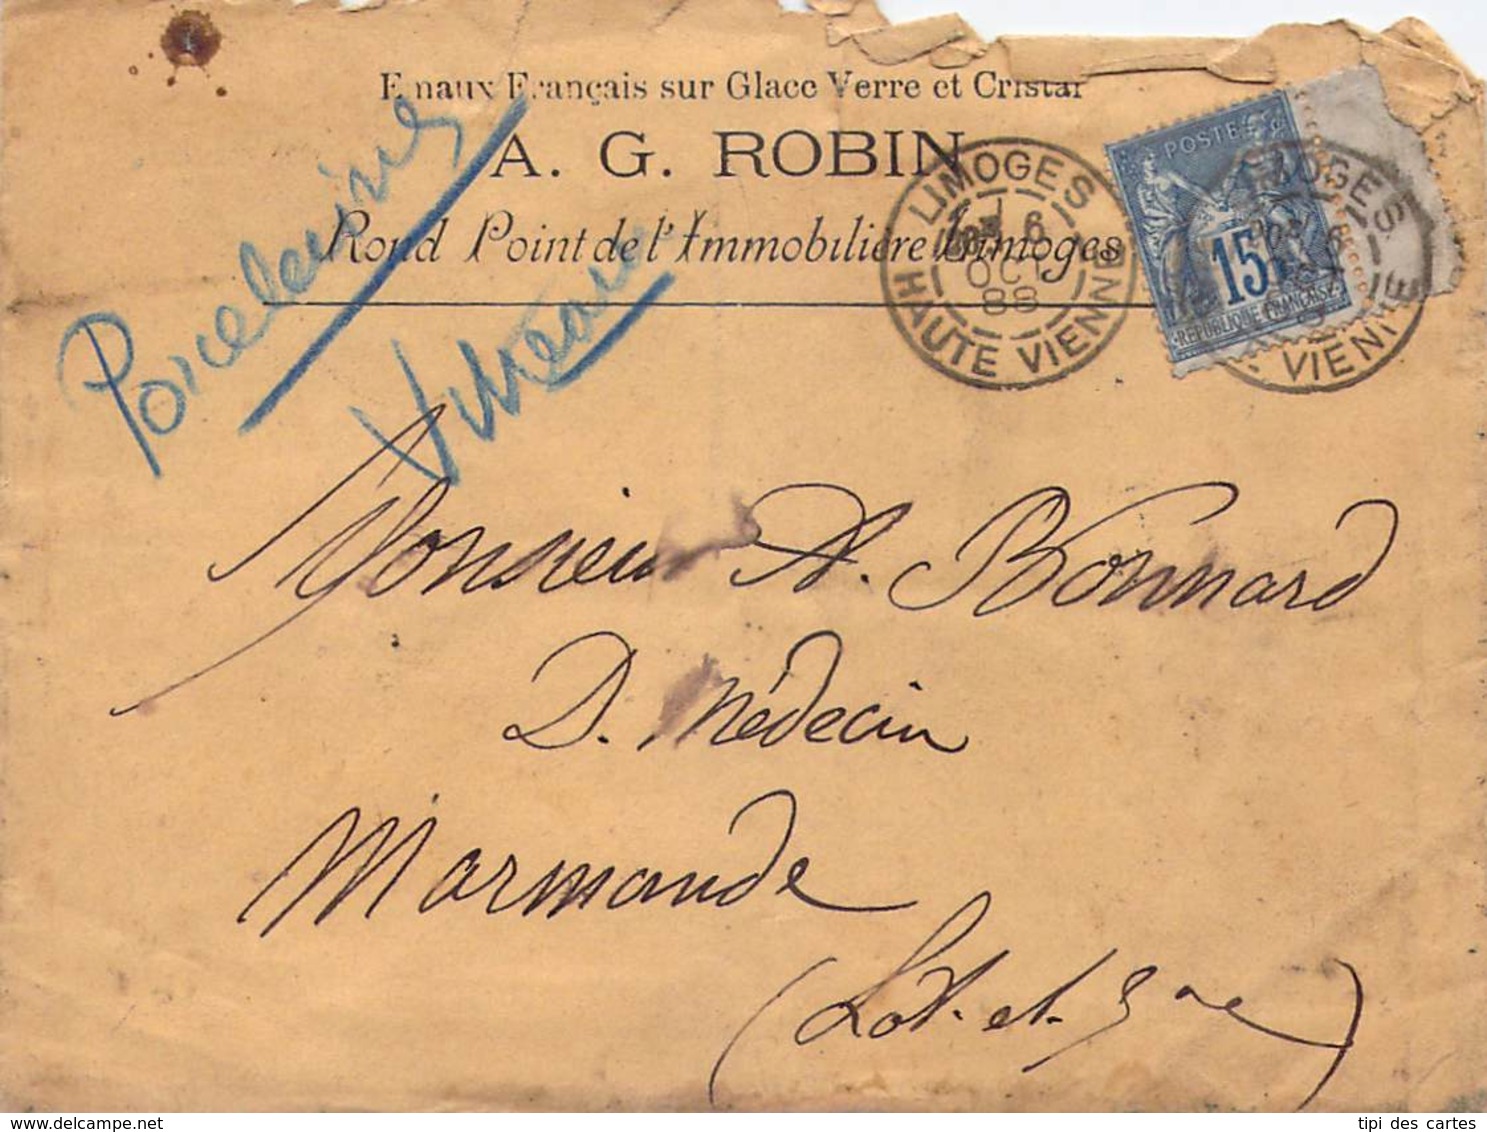 Emaux Français sur Glace Verre et Cristal
A. G. ROBIN
Rond Point de l'Immobilière Limoges
LIMOGES
6
OCT
88
HAUTE VIENNE
POSTES
15
REPUBLIQUE FRANÇAISE
LIMOGES
VIENNE
Monsieur A. Bonnard
D. Médecin
Marmande
(Lot. et. Gne)
tipi des cartes